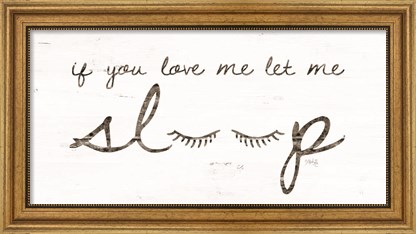 if you love me let me
sl  p